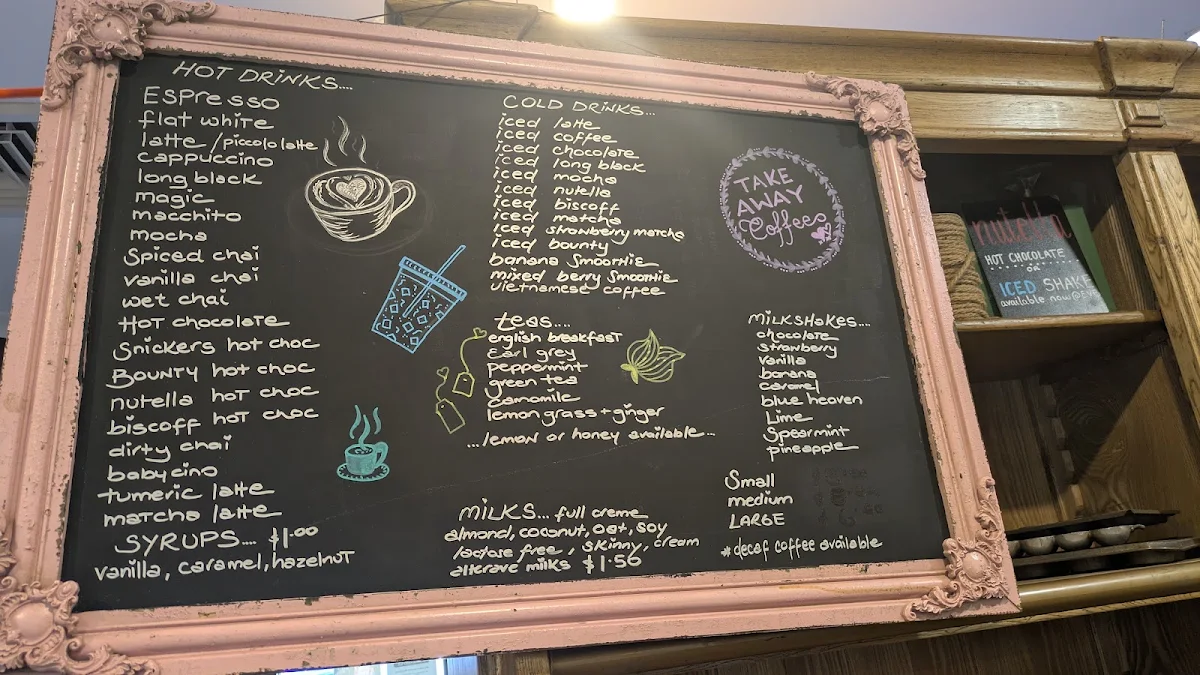 HOT DRINKS....
Espresso
flat white
latte /piccolo latte
cappuccino
long black
magic
macchito
mocha
Spiced chai
vanilla chai
wet chai
HOT chocolate
Snickers hot choc
BOUNTY hot choc
nutella hot choc
biscoff hot choc
dirty chai
babycino
tumeric latte
matcha latte
SYRUPS.... $1.00
vanilla, caramel, hazelnut
COLD DRINKS...
iced latte
iced coffee
iced chocolate
iced long black
iced mocha
iced nutella
iced biscoff
iced matcha
iced strawberry matcha
iced bounty
banana Smoothie
mixed berry Smoothie
vietnamese coffee
teas....
english breakfast
Earl grey
peppermint
green tea
Camomile
lemon grass + ginger
...lemon or honey available...
MILKS... full creme
almond, coconut, oat, soy
lactose free, skinny, cream
TAKE
AWAY
Coffees
MILKSHAKES....
chocolate
strawberry
vanilla
banana
caramel
blue heaven
Lime
Spearmint
pineapple
Small
medium
LARGE
*decaf coffee available
milks $1.50
nutella
HOT CHOCOLATE
OR
ICED SHAKE
available now